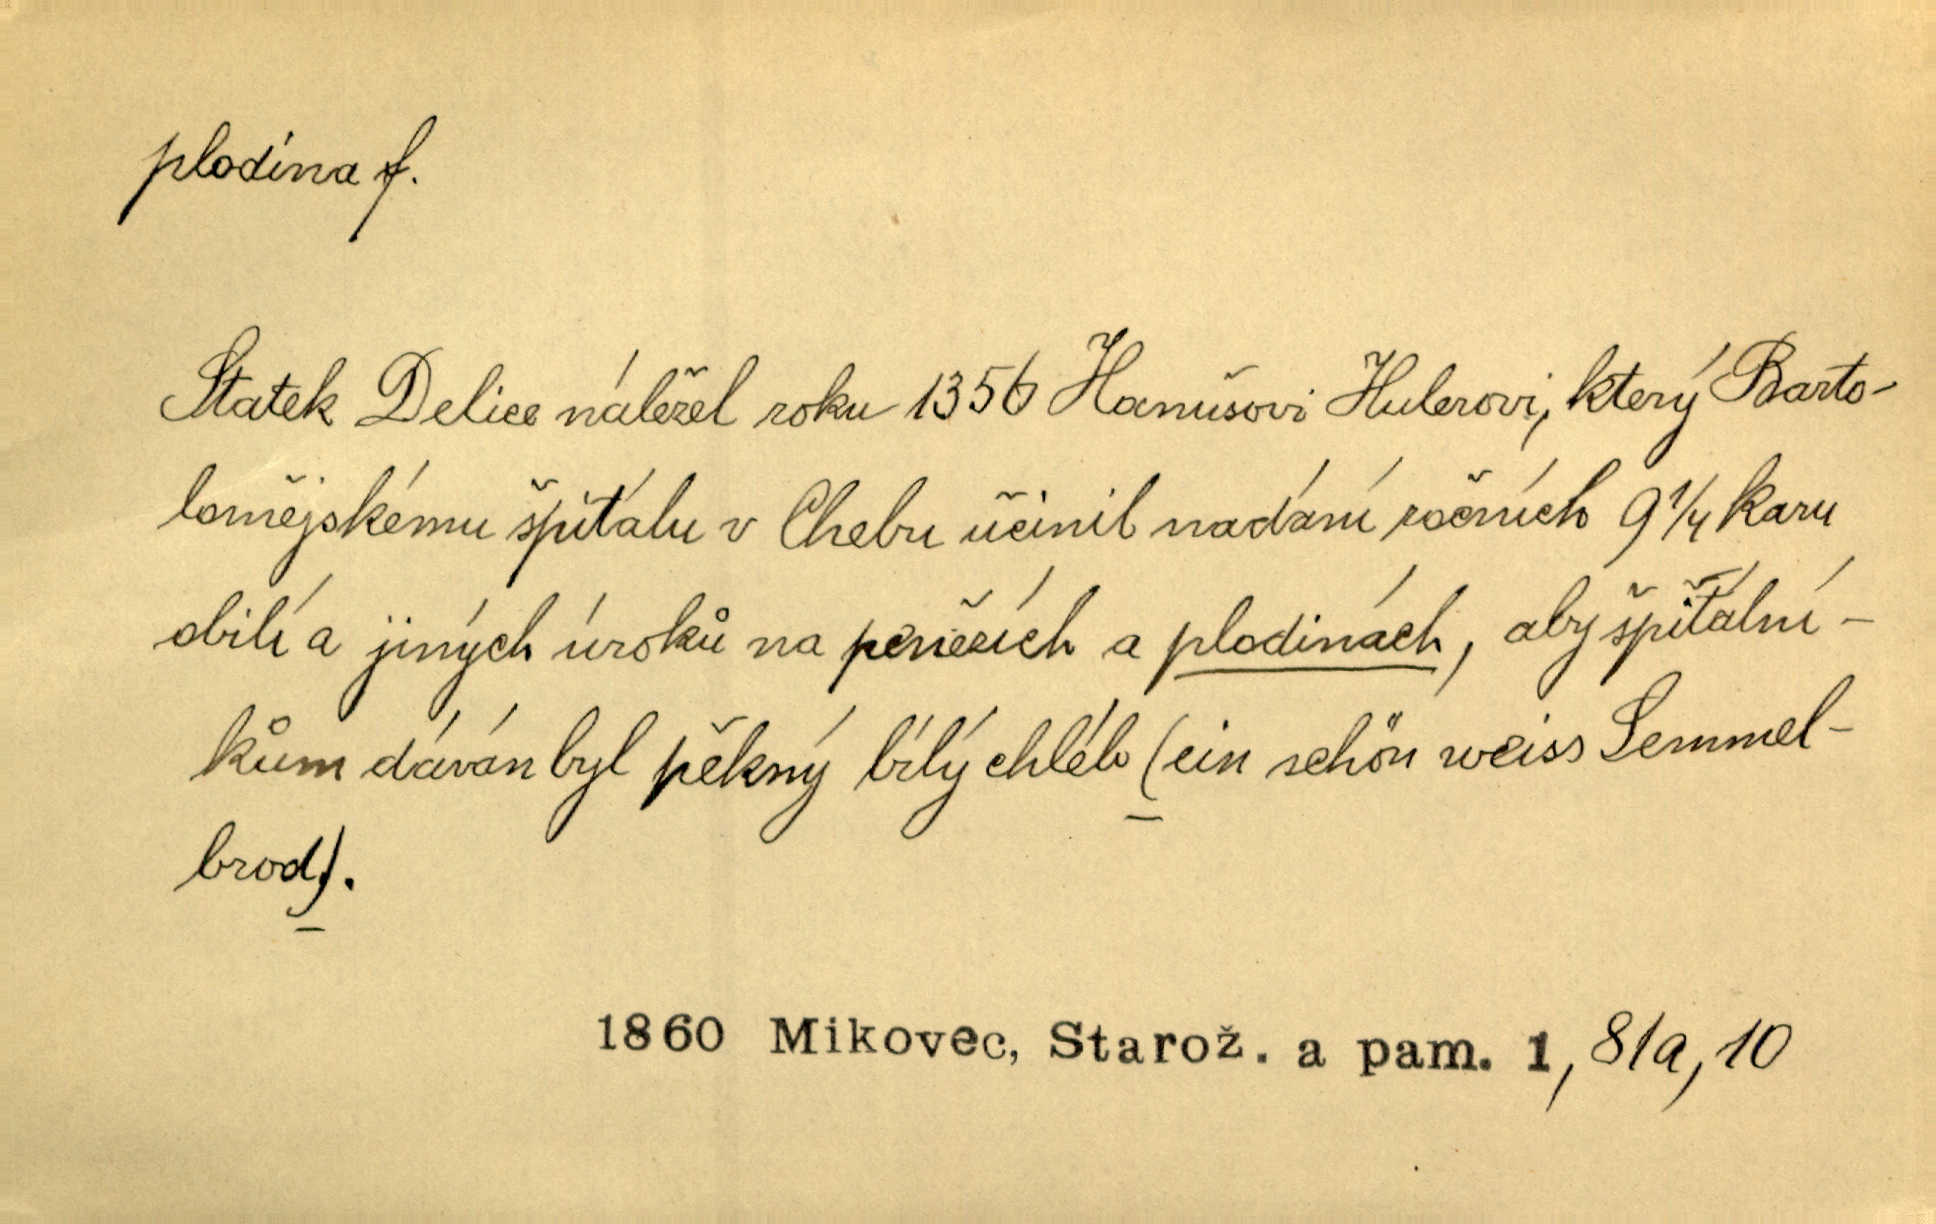 plodina f.
Statek Delice náležel roku 1356 Hanušovi Hulerovi, který Barto-
lomějskému špitálu v Chebu učinil nadání ročních 9 1/4 karu
obilí a jiných úroků na penězích a plodinách, aby špitální-
kům dáván byl pěkný bílý chléb (ein schön weiss Semmel-
brod).
1860 Mikovec, Starož. a pam. 1, 81a, 10